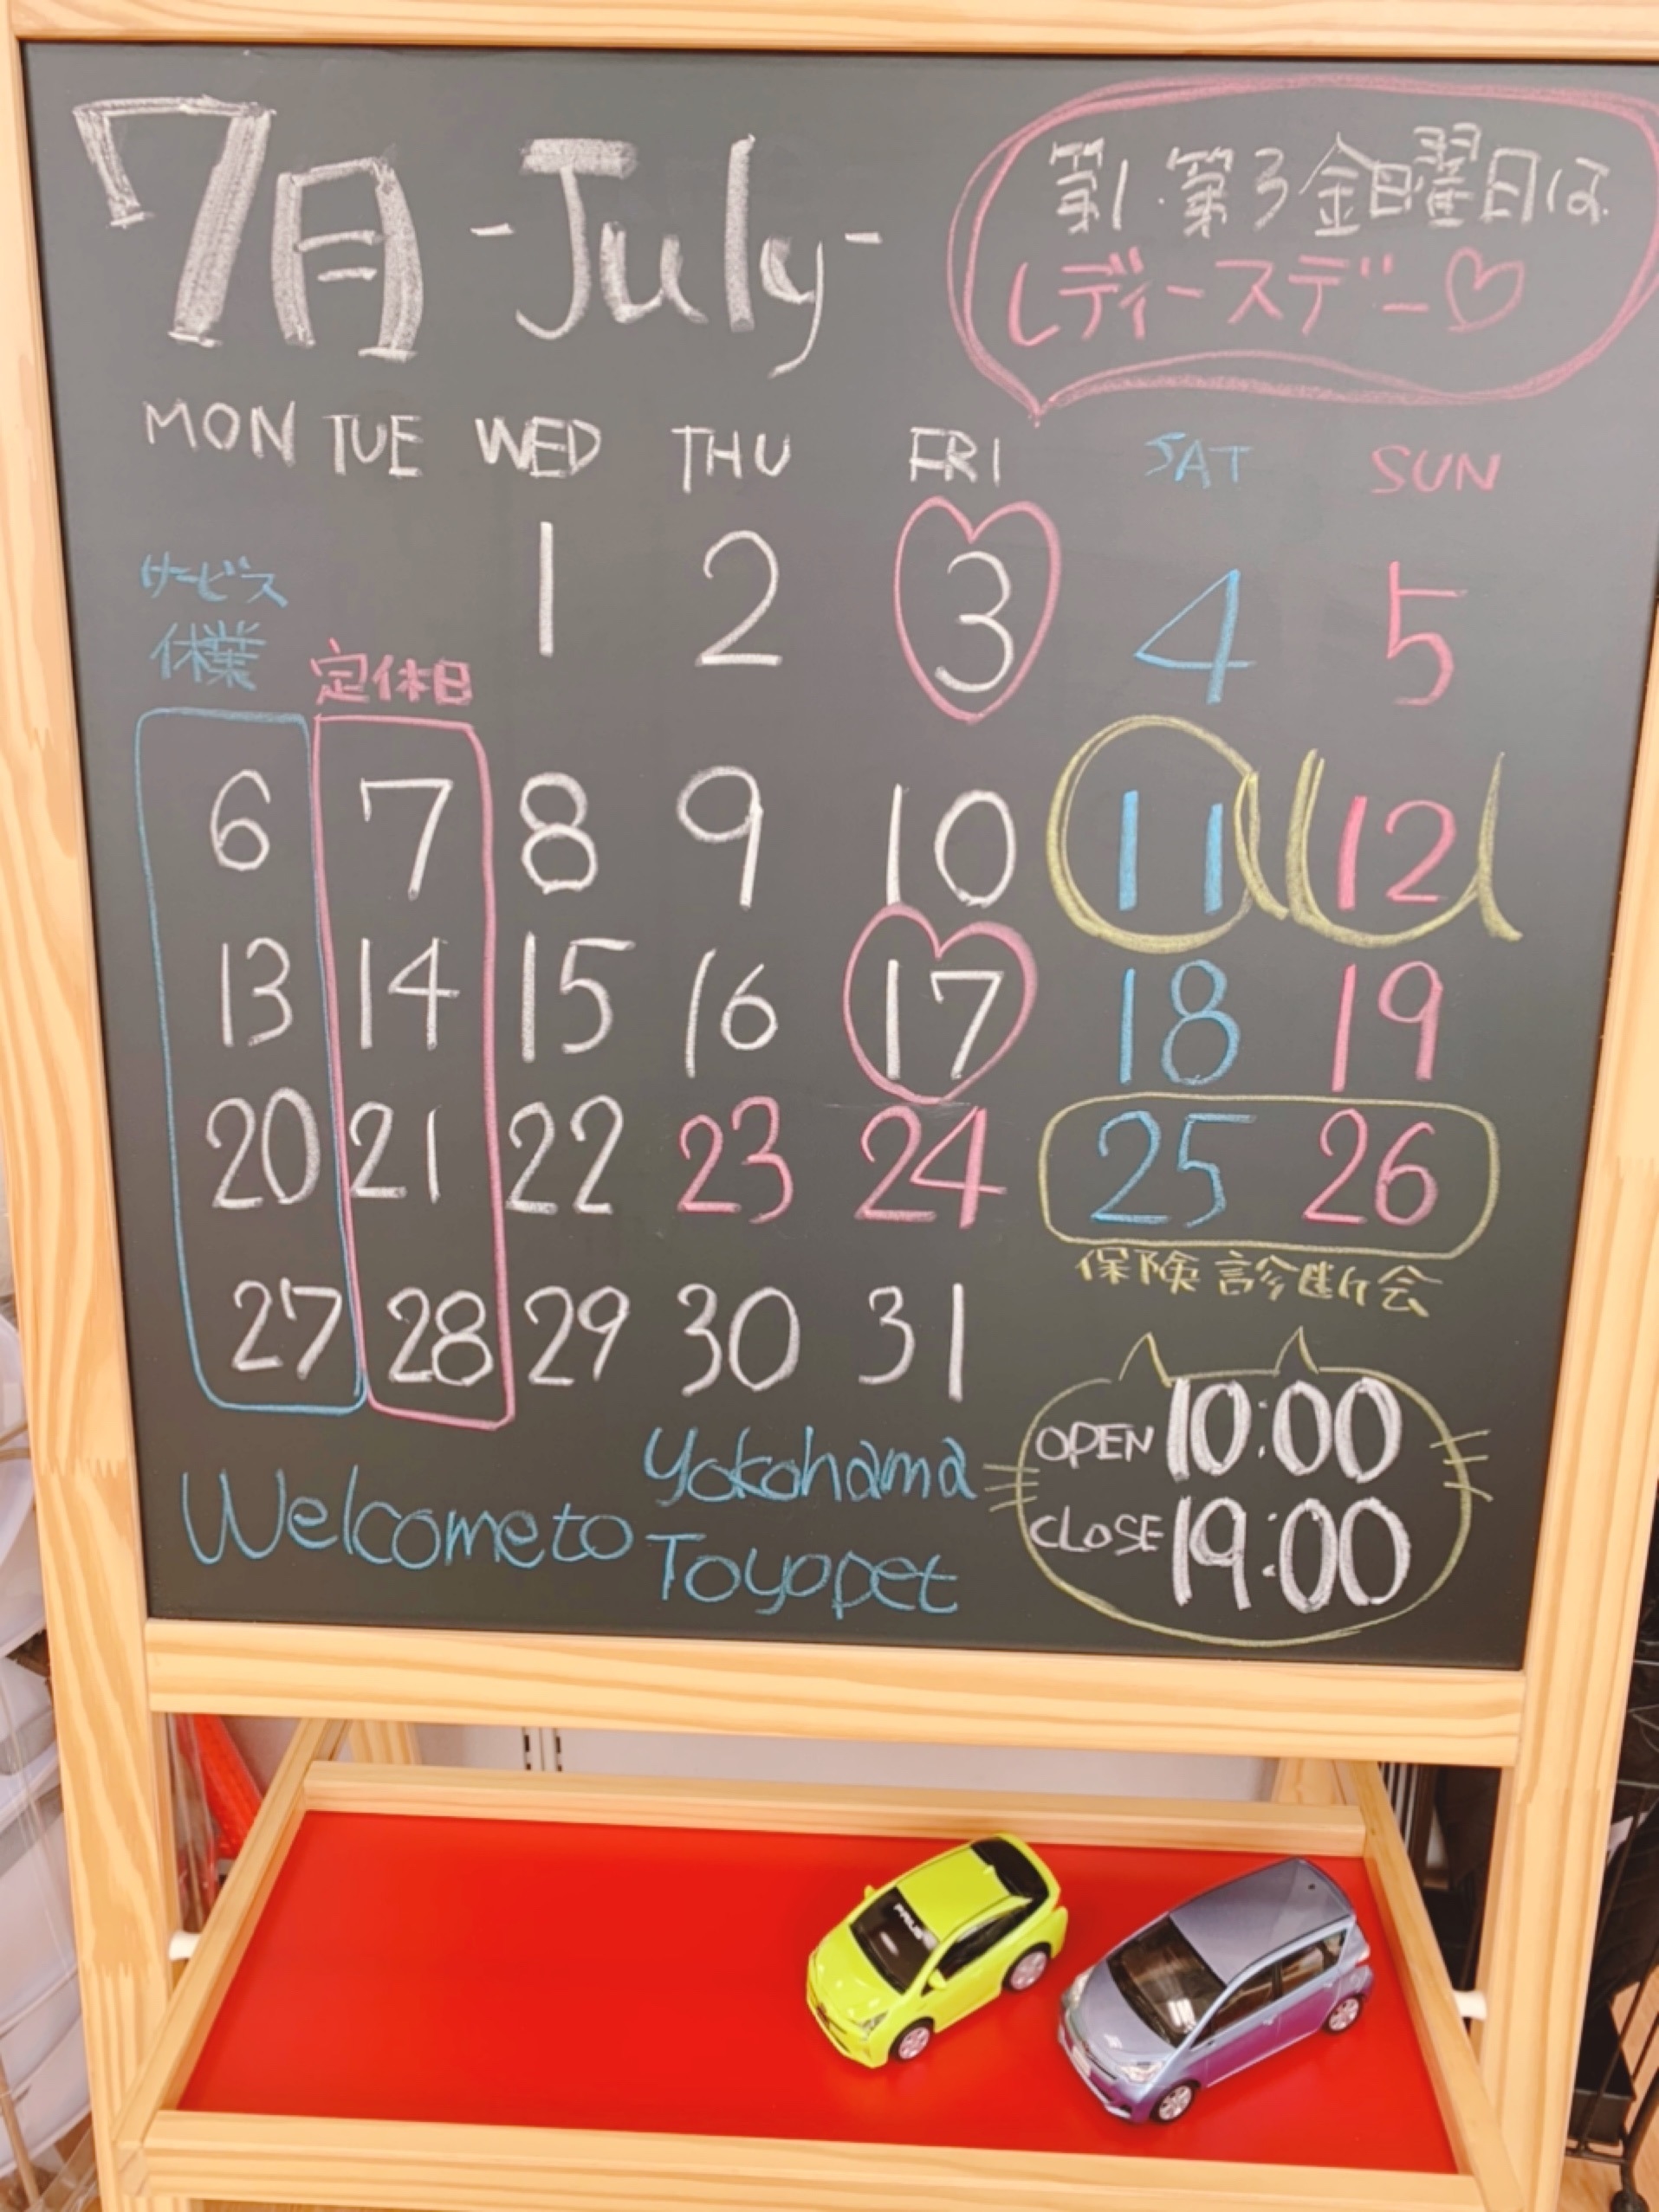 7月 -July-
第1・第3金曜日は
レディースデー♡
MON TUE WED THU FRI SAT SUN
1 2 3 4 5
サービス
休業
定休日
6 7 8 9 10 11 12
13 14 15 16 17 18 19
20 21 22 23 24 25 26
保険診断会
27 28 29 30 31
Welcome to
Yokohama
Toyopet
OPEN 10:00
CLOSE 19:00
PRIUS